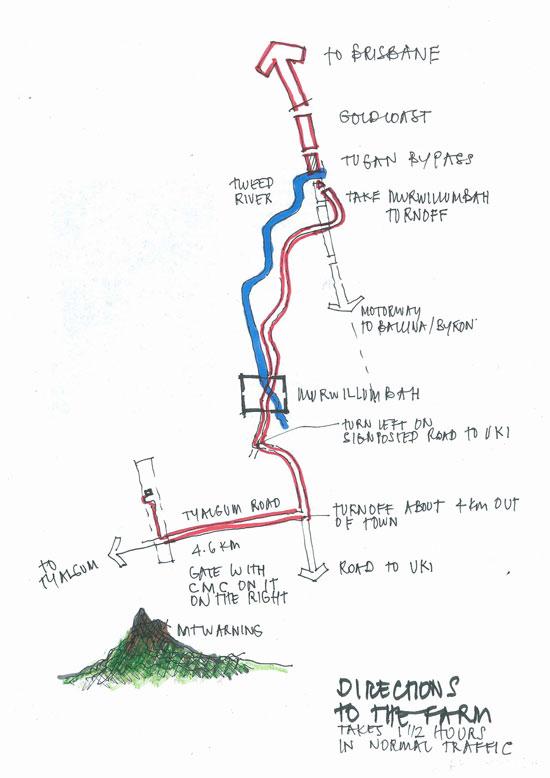 TO BRISBANE
GOLDCOAST
TUGAN BYPASS
TWEED
RIVER
TAKE MURWILLUMBAH
TURNOFF
MOTORWAY
TO BALLINA/BYRON
MURWILLUMBAH
TURN LEFT ON
SIGNPOSTED ROAD TO UKI
TYALGUM ROAD
TURNOFF ABOUT 4 KM OUT
OF TOWN
TO
TYALGUM
4.6 KM
GATE WITH
CMC ON IT
ON THE RIGHT
ROAD TO UKI
MT WARNING
DIRECTIONS
TO THE FARM
TAKES 1 1/2 HOURS
IN NORMAL TRAFFIC